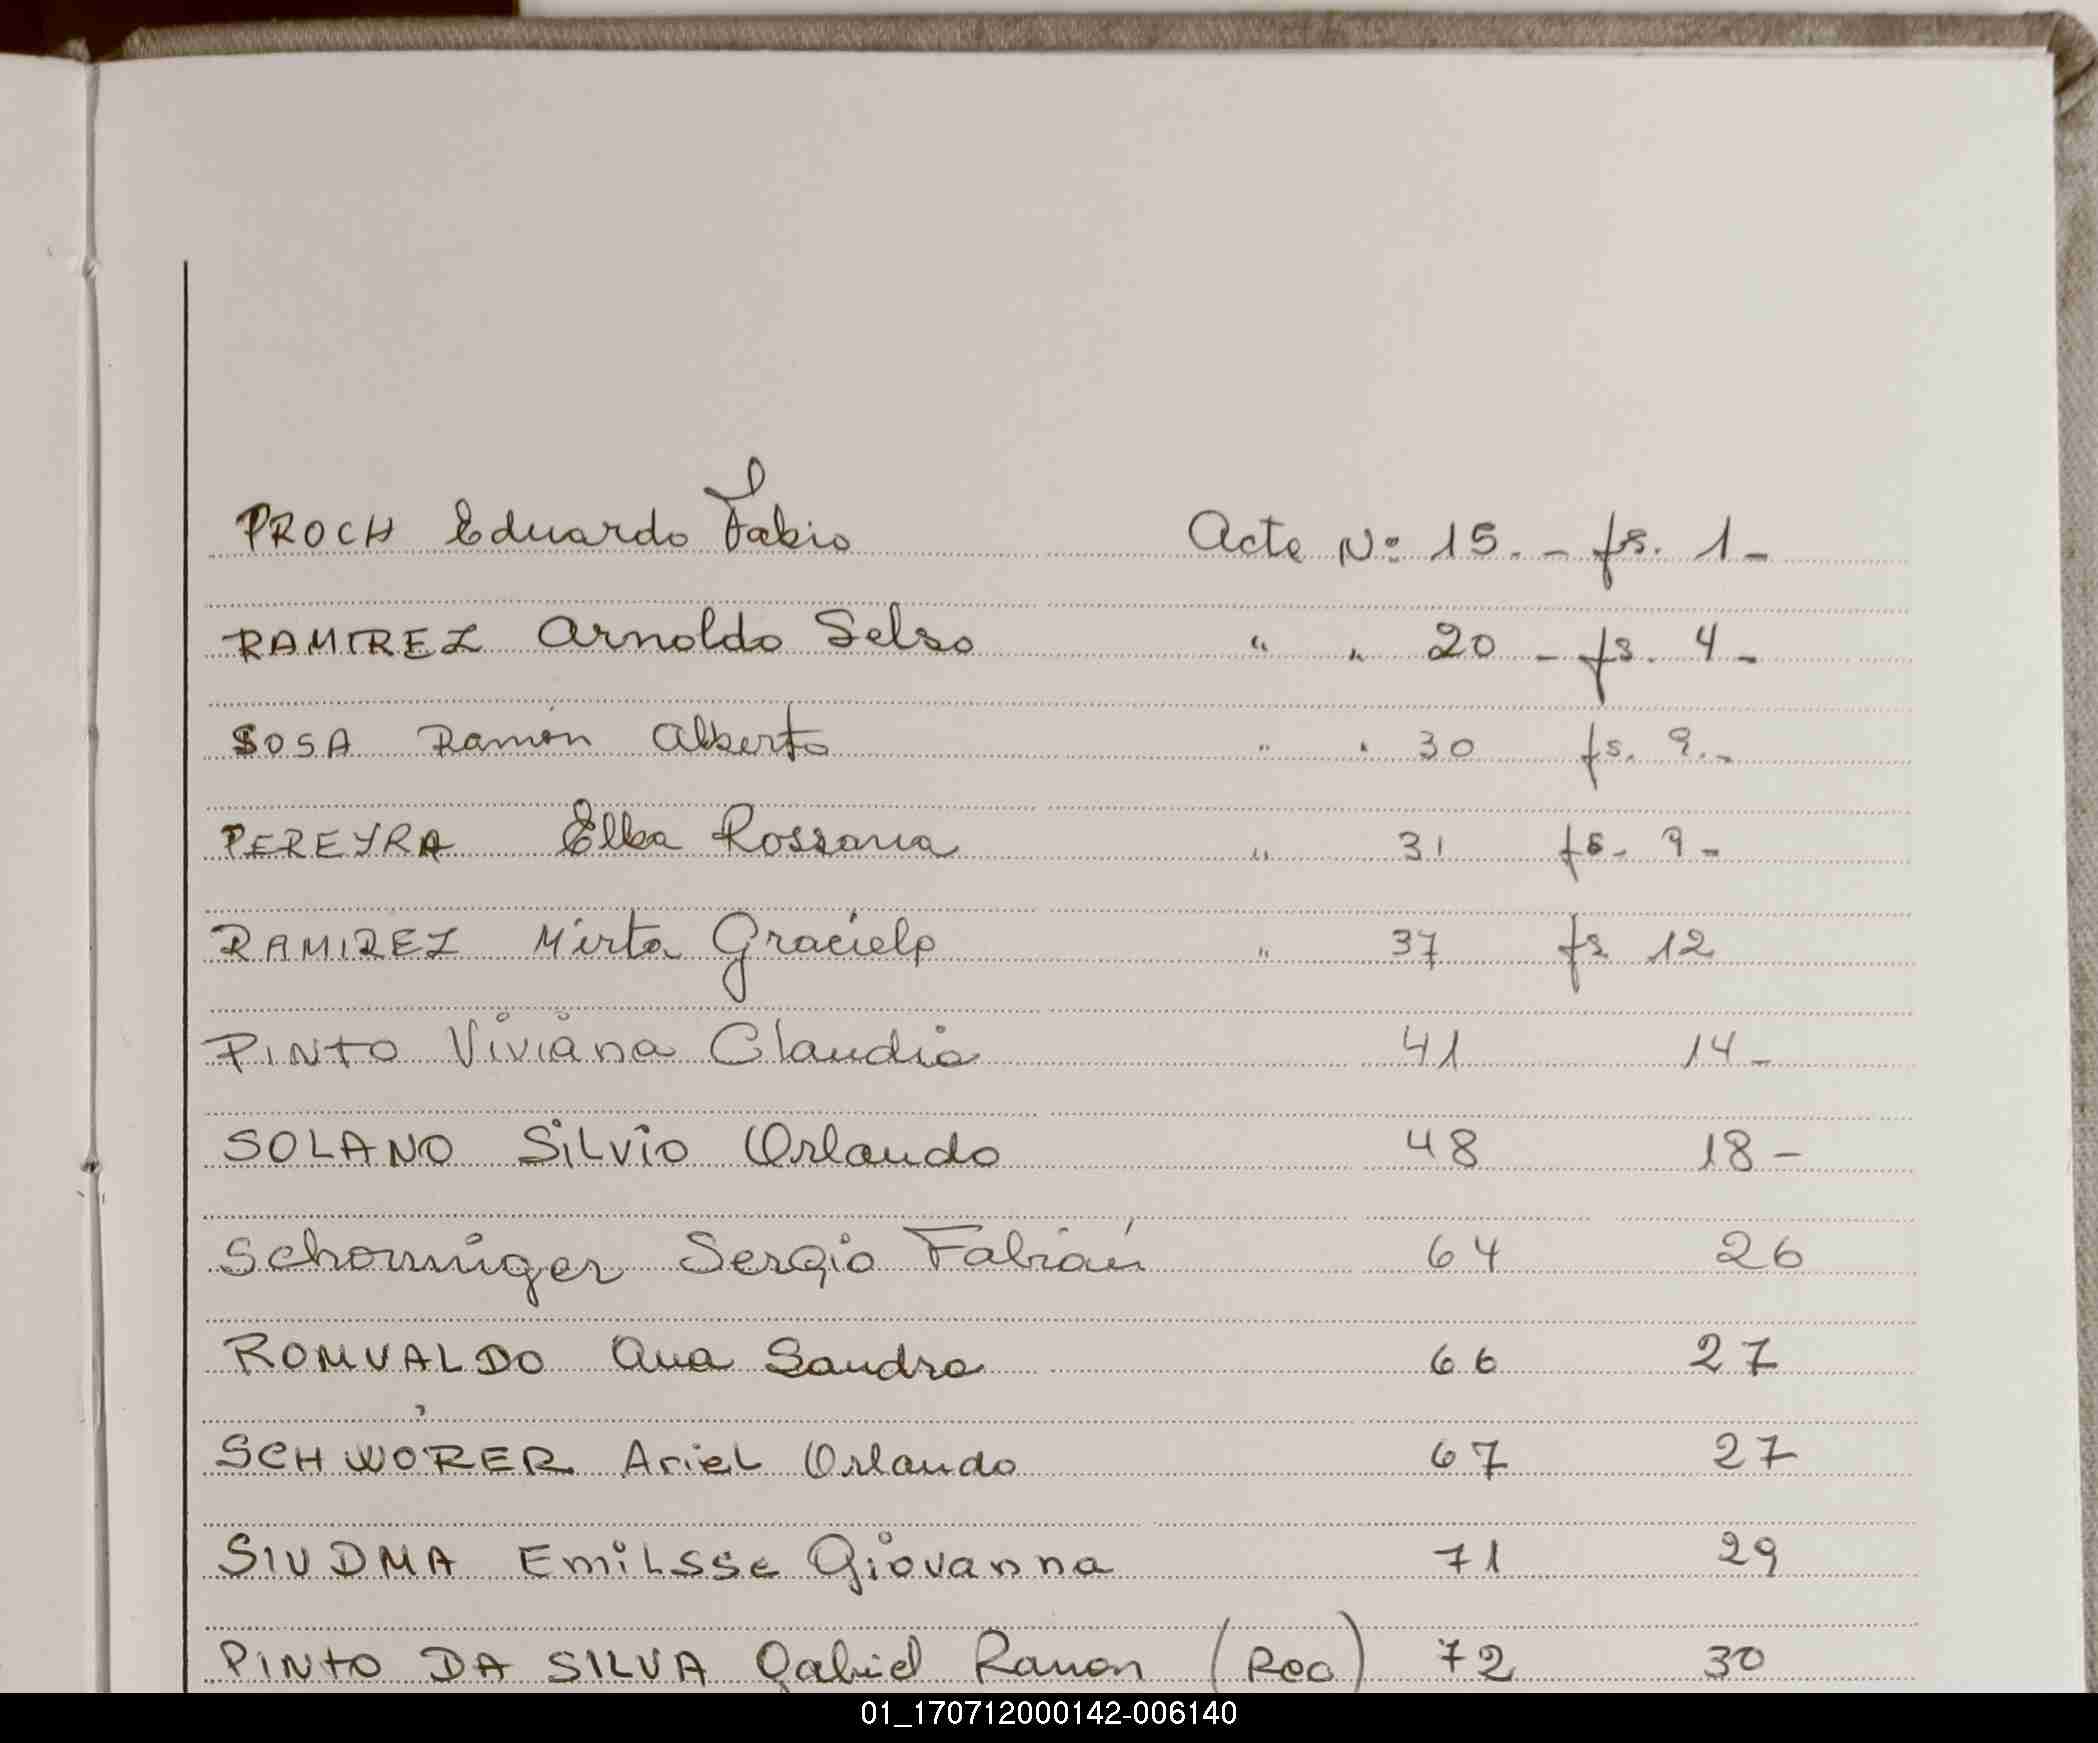 PROCH Eduardo Fabio Acta Nº 15. - fs. 1 -
RAMIREZ Arnoldo Selso " " 20 - fs. 4 -
SOSA Ramón Alberto " " 30 fs. 9. -
PEREYRA Elba Rossana " 31 fs. 9 -
RAMIREZ Mirta Graciela " 37 fs 12
PINTO Viviana Claudia 41 14 -
SOLANO Silvio Orlando 48 18 -
Sergio Fabián 64 26
ROMUALDO Ana Sandra 66 27
SCHWORER Ariel Orlando 67 27
SIUDMA Emilsse Giovanna 71 29
PINTO DA SILVA Gabriel Ramon (Rec) 72 30
01_170712000142-006140